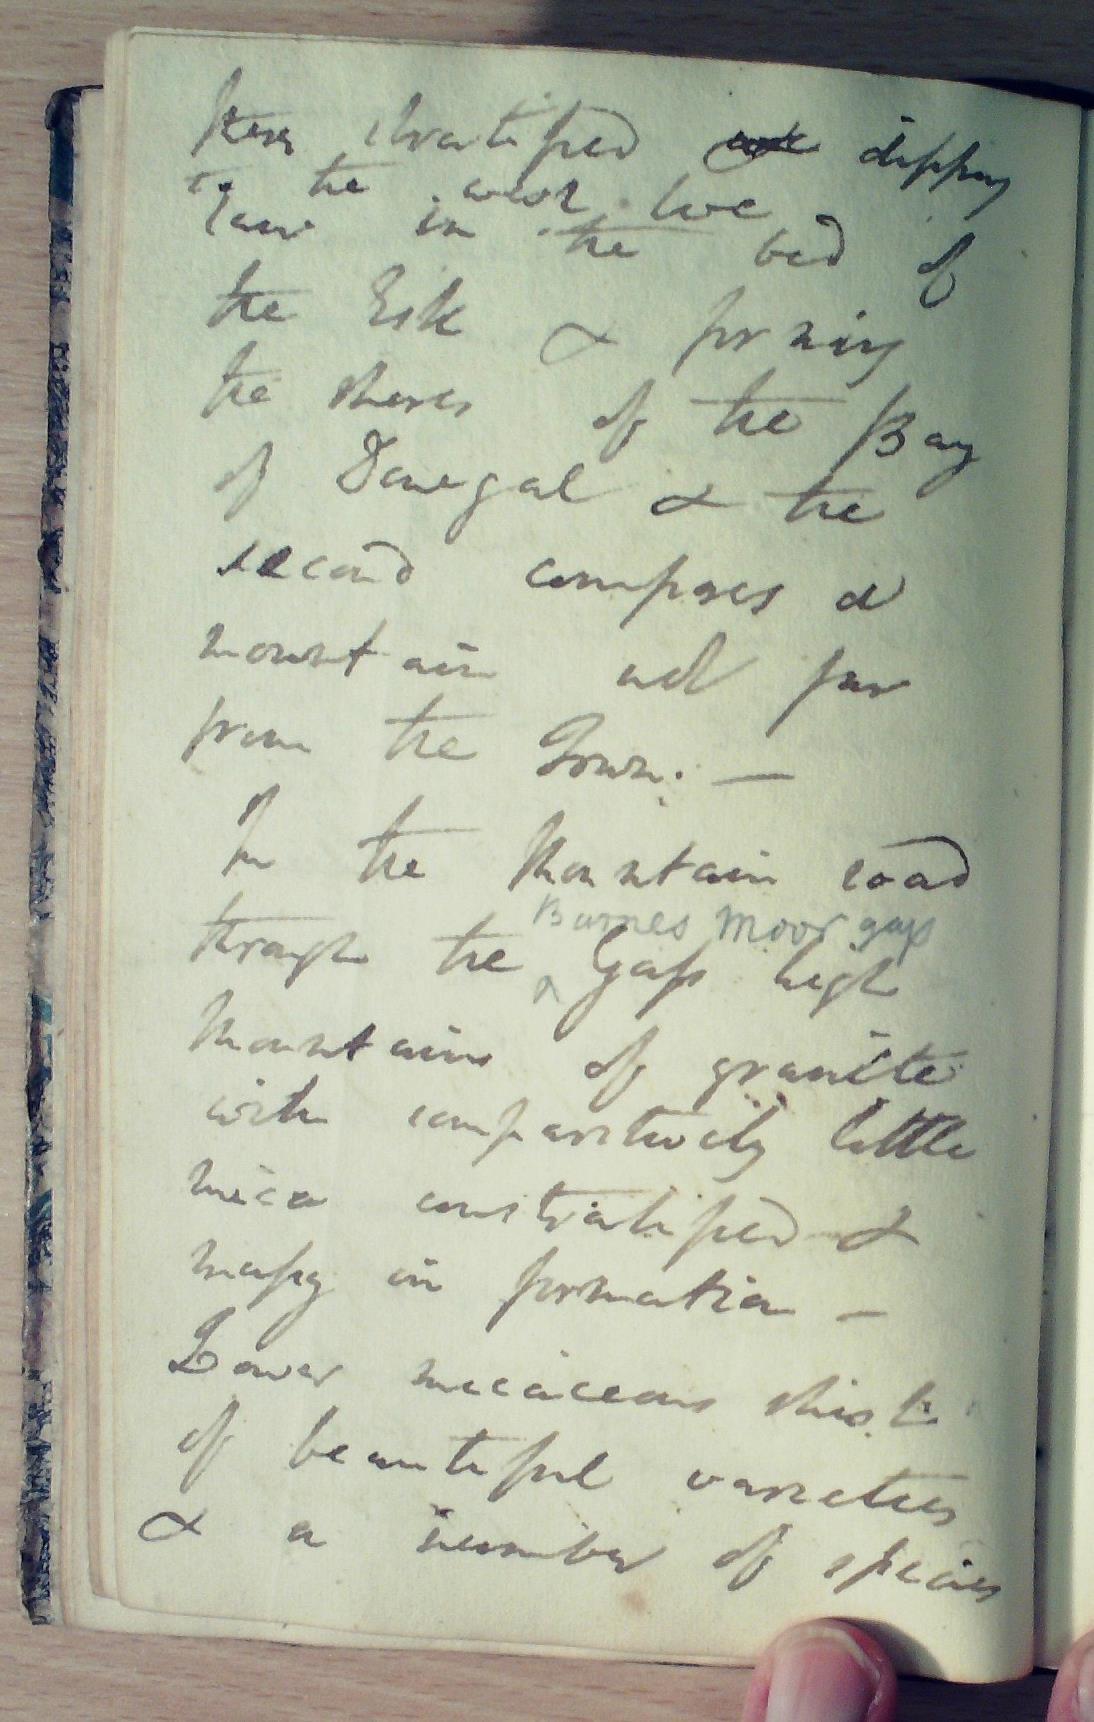 stratified dipping
to the west two
in the bed of
the Esk & forming
the shores of the Bay
of Donegal & the
second composes a
mountain not far
from the Town. —
In the Mountain road
Barnes Moor gap
through the ^ Gap high
Mountains of granite
with comparitively little
mica unstratified &
massy in formation —
Lower micaceous shist
of beautiful varieties
& a number of species